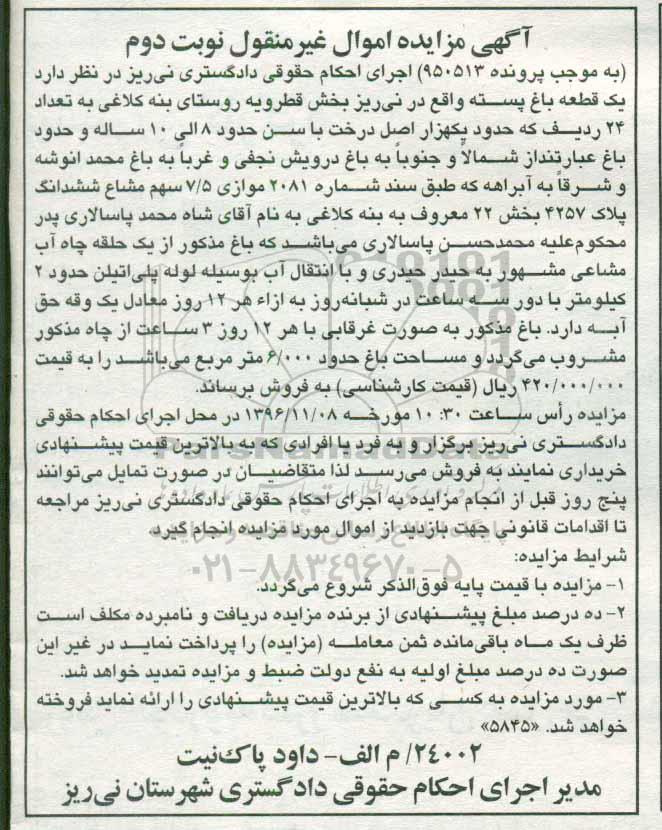 آگهی مزایده اموال غیرمنقول نوبت دوم
(به موجب پرونده ۹۵۰۵۱۳) اجرای احکام حقوقی دادگستری نی‌ریز در نظر دارد
یک قطعه باغ پسته واقع در نی‌ریز بخش قطرویه روستای بنه کلاغی به تعداد
۲۴ ردیف که حدود یکهزار اصل درخت با سن حدود ۸ الی ۱۰ ساله و حدود
باغ عبارتنداز شمالاً و جنوباً به باغ درویش نجفی و غرباً به باغ محمد انوشه
و شرقاً به آبراهه که طبق سند شماره ۲۰۸۱ موازی ۷/۵ سهم مشاع ششدانگ
پلاک ۴۲۵۷ بخش ۲۲ معروف به بنه کلاغی به نام آقای شاه محمد پاسالاری پدر
محکوم‌علیه محمدحسن پاسالاری می‌باشد که باغ مذکور از یک حلقه چاه آب
مشاعی مشهور به حیدر حیدری و با انتقال آب بوسیله لوله پلی‌اتیلن حدود ۲
کیلومتر با دور سه ساعت در شبانه‌روز به ازاء هر ۱۲ روز معادل یک وقه حق
آبه دارد. باغ مذکور به صورت غرقابی با هر ۱۲ روز ۳ ساعت از چاه مذکور
مشروب می‌گردد و مساحت باغ حدود ۶/۰۰۰ متر مربع می‌باشد را به قیمت
۴۲۰/۰۰۰/۰۰۰ ریال (قیمت کارشناسی) به فروش برساند.
مزایده رأس ساعت ۱۰:۳۰ مورخه ۱۳۹۶/۱۱/۰۸ در محل اجرای احکام حقوقی
دادگستری نی‌ریز برگزار و به فرد یا افرادی که به بالاترین قیمت پیشنهادی
خریداری نمایند به فروش می‌رسد لذا متقاضیان در صورت تمایل می‌توانند
پنج روز قبل از انجام مزایده به اجرای احکام حقوقی دادگستری نی‌ریز مراجعه
تا اقدامات قانونی جهت بازدید از اموال مورد مزایده انجام گیرد.
شرایط مزایده:
۱- مزایده با قیمت پایه فوق‌الذکر شروع می‌گردد.
۲- ده درصد مبلغ پیشنهادی از برنده مزایده دریافت و نامبرده مکلف است
ظرف یک ماه باقی‌مانده ثمن معامله (مزایده) را پرداخت نماید در غیر این
صورت ده درصد مبلغ اولیه به نفع دولت ضبط و مزایده تمدید خواهد شد.
۳- مورد مزایده به کسی که بالاترین قیمت پیشنهادی را ارائه نماید فروخته
خواهد شد. «۵۸۴۵»
۲۴۰۰۲/ م الف- داود پاک‌نیت
مدیر اجرای احکام حقوقی دادگستری شهرستان نی‌ریز
ParsNamadData
۰۲۱-۸۸۳۴۹۶۷۰-۵